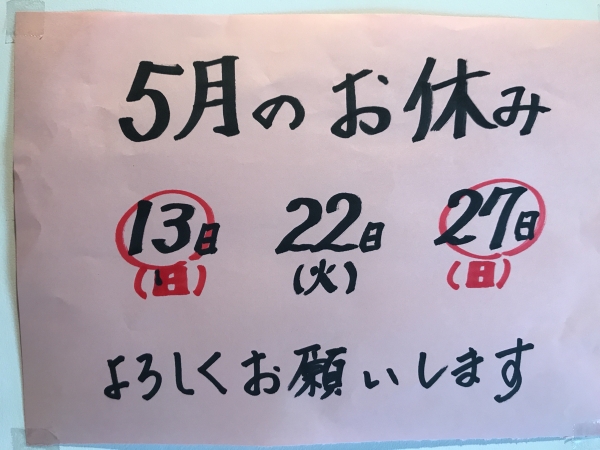 5月のお休み
13日 22日 27日
(日) (火) (日)
よろしくお願いします